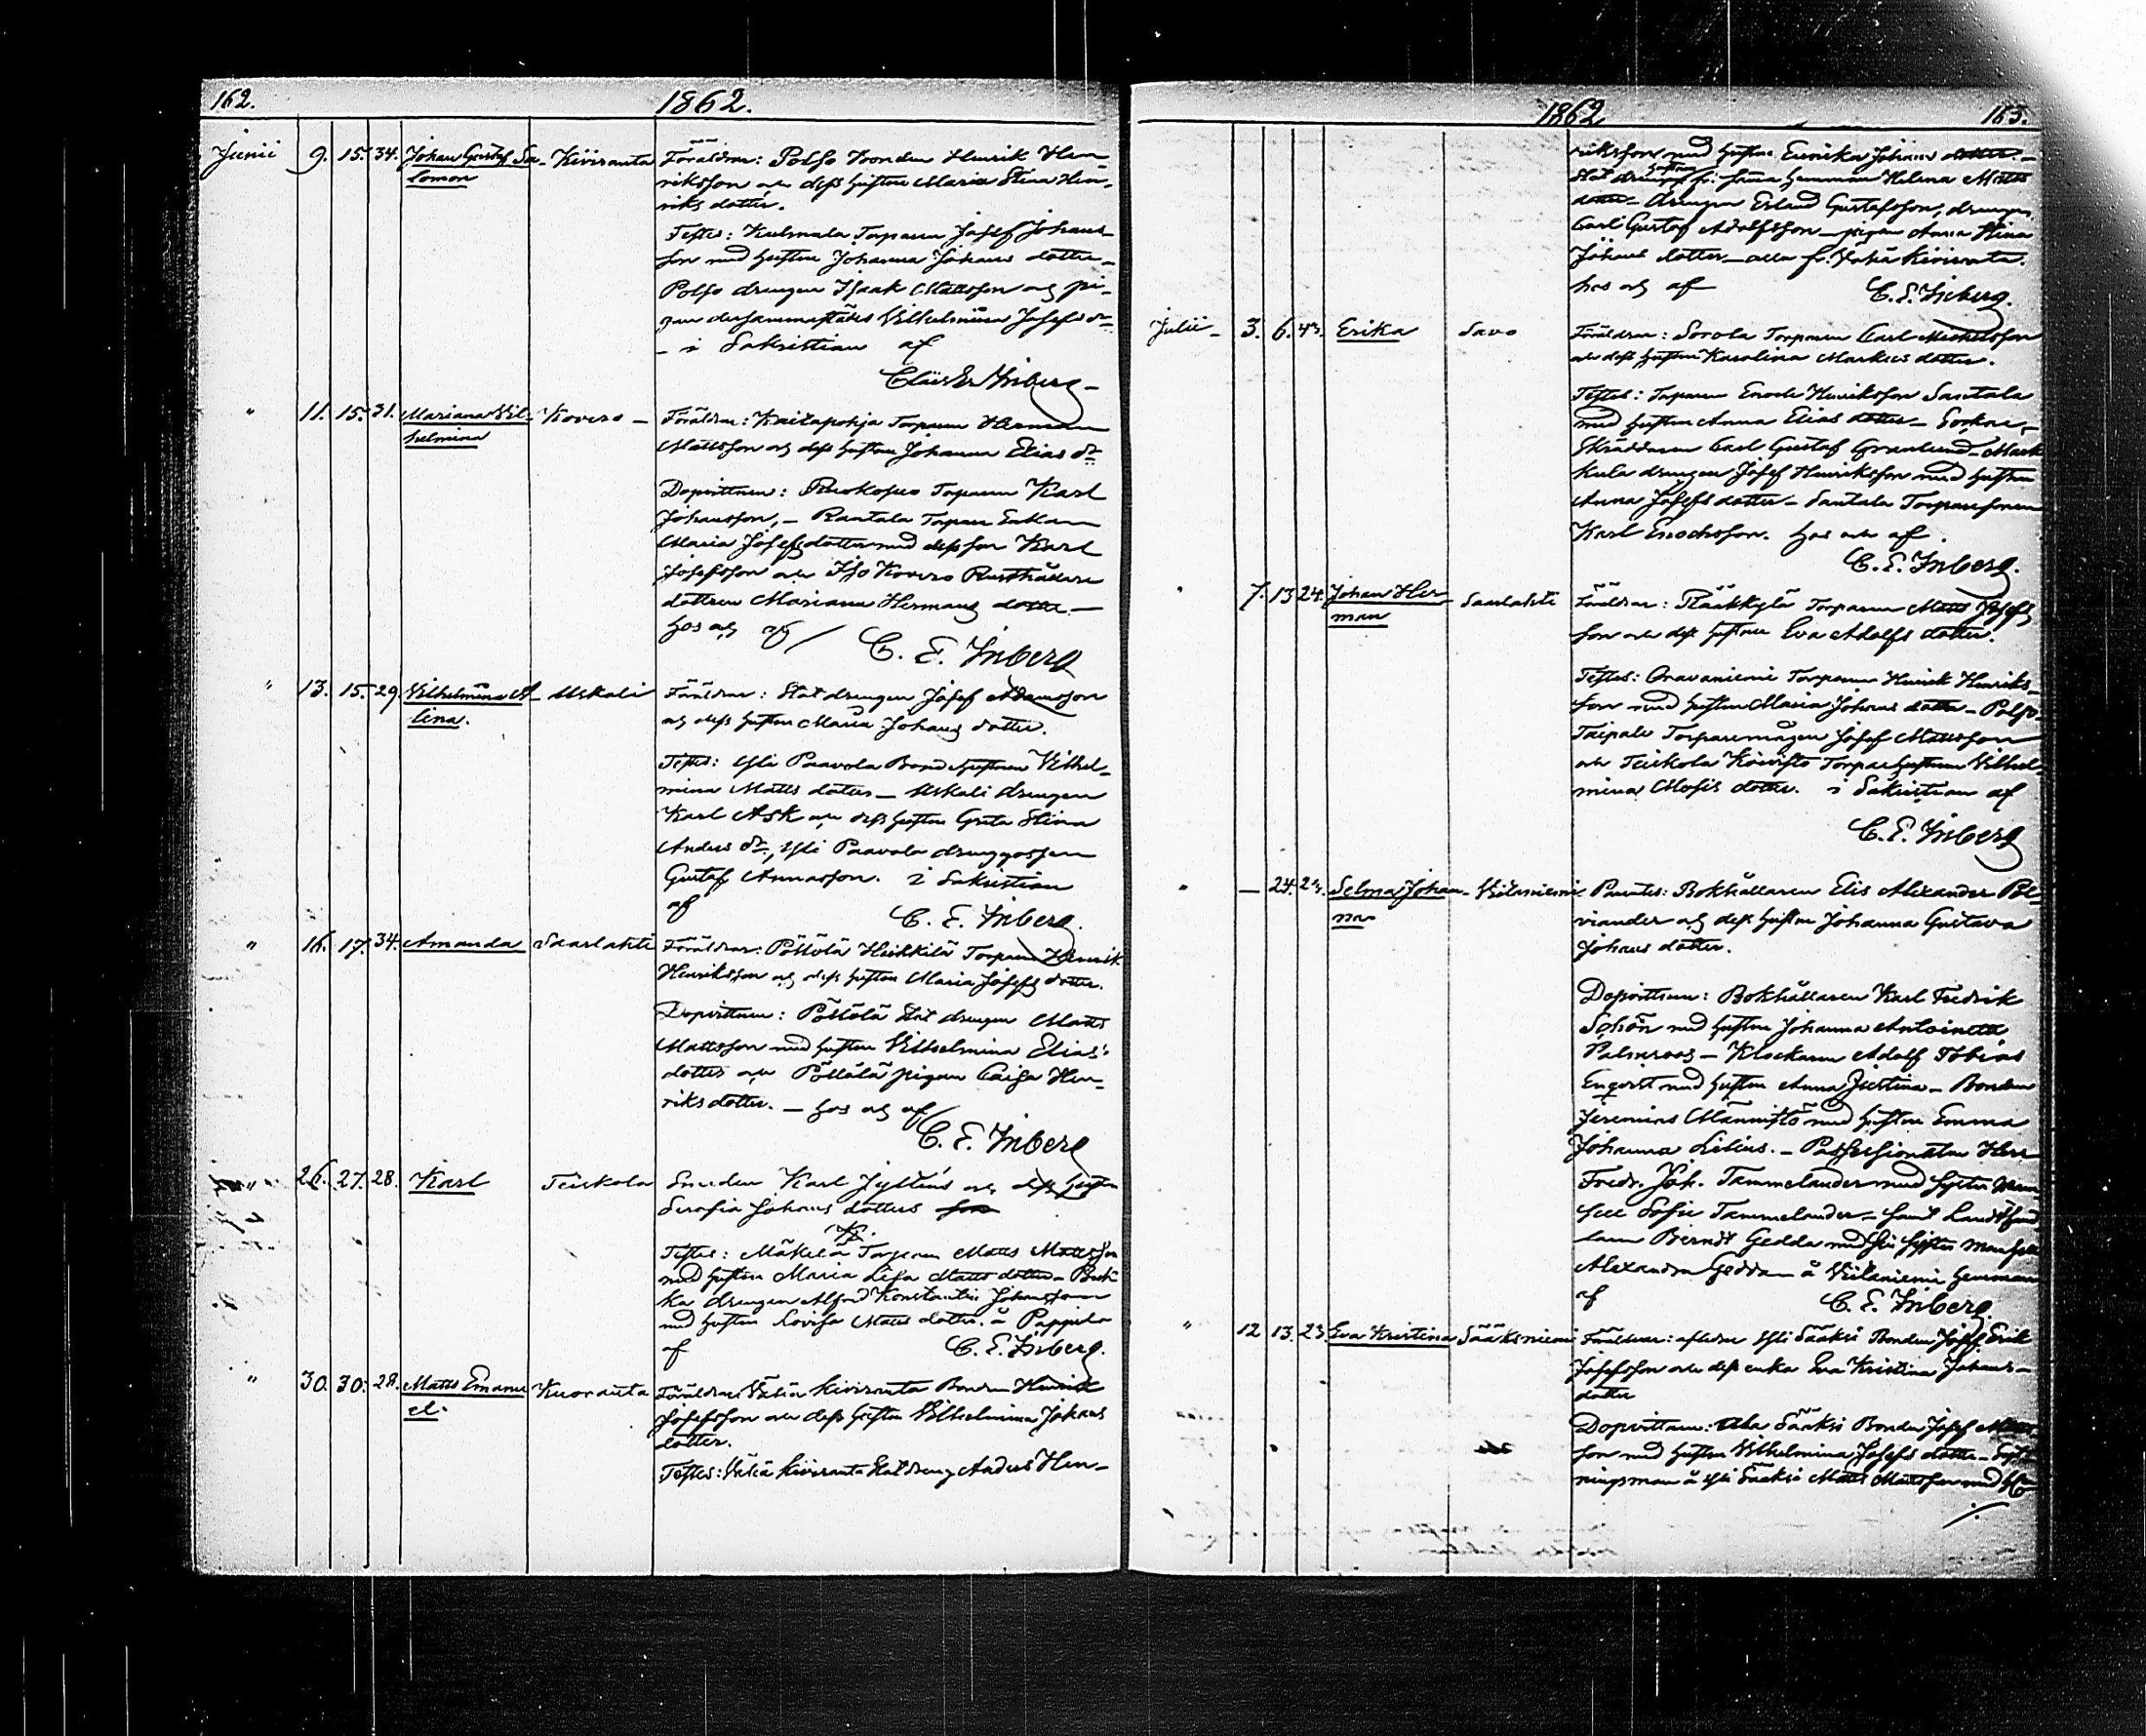 162.
1862.
Junii 9. 15. 34. Johan Gustaf Sa- Kiviranta Föräldrar: Polso Bonden Henrik Hen-
lomon riksson och dess hustru Maria Stina Hen-
riks dotter.
Testes: Kulmala Torparen Josef Johans-
son med hustru Johanna Johans dotter -
Polso drengen Isaak Mattsson och pi-
gan dersammastädes Vilhelmina Josefs dr
- i Sakristian af
Inberg -
" 11. 15. 31. Mariana Vil- Kovero - Föräldrar: Kaitapohja Torparen Herman
helmina Mattsson och dess hustru Johanna Elias dr
Dopvittnen: Torparen Karl
Johansson, - Rantala Torpare Enkan
Maria Josefs dotter med dess son Karl
Josefsson och Iso Kovero Rusthållare
dottren Mariana Hermans dotter -
hos och af
C. E. Inberg
" 13. 15. 29. Vilhelmina A- Uskali Föräldrar: Stat drengen Josef Adamsson
lina. och dess hustru Maria Johans dotter.
Testes: Yli Paavola Bondehustrun Vilhel-
mina Matts dotter - Uskali drengen
Karl Ask och dess hustru Greta Stina
Anders dr, Yli Paavola drenggossen
Gustaf Annasson. i Sakristian
af C. E. Inberg.
" 16. 17. 34. Amanda Saarlahti Föräldrar: Pöllölä Heikkilä Torparen Henrik
Henriksson och dess hustru Maria Josefs dotter.
Dopvittnen: Pöllölä Stat drengen Matts
Mattsson med hustru Vilhelmina Elias
dotter och Pöllölä pigan Caisa Hen-
riks dotter. - hos och af
C. E. Inberg
" 26. 27. 28. Karl Teiskola Smeden Karl och dess hustru
Serafia Johans dotters son
Testes: Mäkelä Torparen Matts Mattsson
med hustru Maria Lisa Matts dotter -
drengen Alfred Konstantin Johansson
med hustru Lovisa Matts dotter. å Pappila
af C. E. Inberg.
" 30. 30. 28. Matts Emanu- Föräldrar: Vähä Kiviranta Bonden Henrik
el. Josefsson och dess hustru Vilhelmina Johans
dotter.
Testes: Vähä Kiviranta Stat dreng Anders Hen-
1862
163.
riksson med hustru Eurika Johans dotter. -
Stat drengs hustrun fr. samma hemman Helena Matts
dotter - drengen Erland Gustafsson, drengen
Carl Gustaf Adolfsson - pigan Anna Stina
Johans dotter - alla fr. Vähä Kiviranta.
hos och af C. E. Inberg.
Julii - 3. 6. 43. Erika Savo Föräldrar: Sorola Torparen Carl Michelsson
och dess hustru Karolina Markus dotter.
Testes: Torparen Enok Henriksson Santala
med hustru Anna Elias dotter - Socken-
Skräddaren Carl Gustaf Granlund - Mark-
kula drengen Josef Henriksson med hustru
Anna Josefs dotter - Santala Torparesonen
Karl Enochsson. hos och af.
C. E. Inberg.
" 7. 13. 24. Johan Her- Saarlahti Föräldrar: Räikkylä Torparen Matts Josefs-
man son och dess hustru Eva Adolfs dotter.
Testes: Oravaniemi Torparen Henrik Henriks-
son med hustru Maria Johans dotter - Polso-
Taipale Torparemågen Josef Mattsson
och Teiskola Koivisto Torparehustrun Vilhel-
mina Moses dotter. i Sakristian af
C. E. Inberg
" - 24. 24. Selma Johan- Viilaniemi Parentes: Bokhållaren Elis Alexander Be-
na viander och dess hustru Johanna Gustava
Johans dotter.
Dopvittnen: Bokhållaren Karl Fredrik
Schön med hustru Johanna Antoinetta
Palmroos - Klockaren Adolf Tobias
Enqvist med hustru Anna Justina - Bonden
Jeremias Männistö med hustru Emma
Johanna Lilius. - Possessionaten Herr
Fredr. Joh. Tammelander med syster Mam-
sell Sofie Tammelander - samt
Berndt Gedda med sin syster Mamsell
Alexandra Gedda - å Viilaniemi hemman
af C. E. Inberg
" 12 13. 23. Eva Kristina Sääksniemi Föräldrar: aflidne Yli Sääksi Bonden Josef Erik
Josefsson och dess enka Eva Kristina Johans-
dotter
Dopvittnen: Ala Sääksi Bonden Josef Matts-
son med hustru Vilhelmina Josefs dotter -
å Yli Sääksi Matts Mattsson med